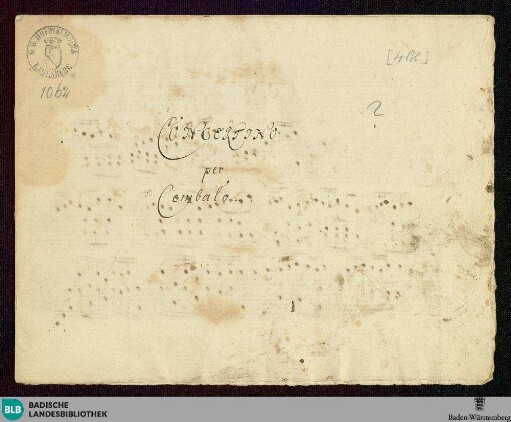 1062
[4 Bl.]
?
CONCERTINO
per
Cembalo.
BLB
BADISCHE
LANDESBIBLIOTHEK
Baden-Württemberg